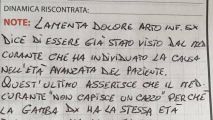 DINAMICA RISCONTRATA:
NOTE: LAMENTA DOLORE ARTO INF. SX
DICE DI ESSERE GIÀ STATO VISTO DAL MED.
CURANTE CHE HA INDIVIDUATO LA CAUSA
NELL'ETÀ AVANZATA DEL PAZIENTE.
QUEST'ULTIMO ASSERISCE CHE IL MED.
CURANTE "NON CAPISCE UN CAZZO" PERCHÉ
LA GAMBA DX HA LA STESSA ETÀ